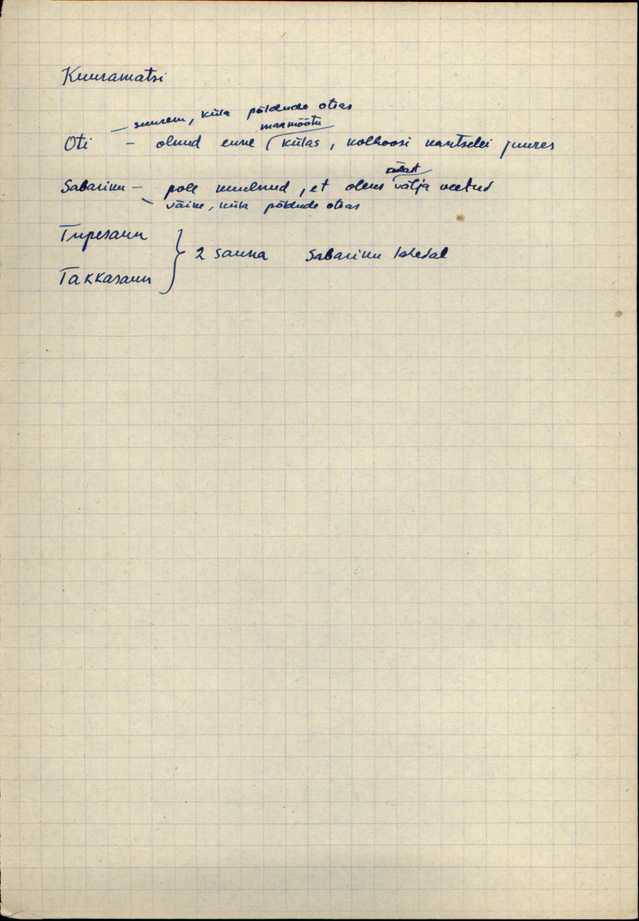 Kuuramatsi
– suurem, küla põldude otsas
maamõõtu
Oti – olnud enne külas, kolhoosi kantselei juures
külast
Sabariku – pole kuulnud, et oleks välja veetud
väike, küla põldude otsas
Tupesaun
Takkasaun } 2 sauna Sabariku lähedal